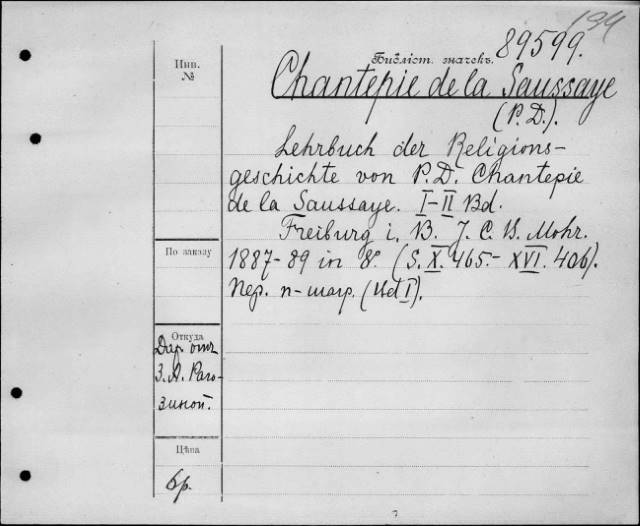 194
Инв.
№
Библіот. значекъ.
89599.
Chantepie de la Saussaye
(P. D.).
Lehrbuch der Religions-
geschichte von P. D. Chantepie
de la Saussaye. I-II Bd.
Freiburg i. B. J. C. B. Mohr.
1887-89 in 8º (S. X. 465.- XVI. 406).
Пер. п-шагр. (Bd I).
По заказу
Откуда
Дар отъ
З. А. Раго-
зиной.
Цѣна
6р.